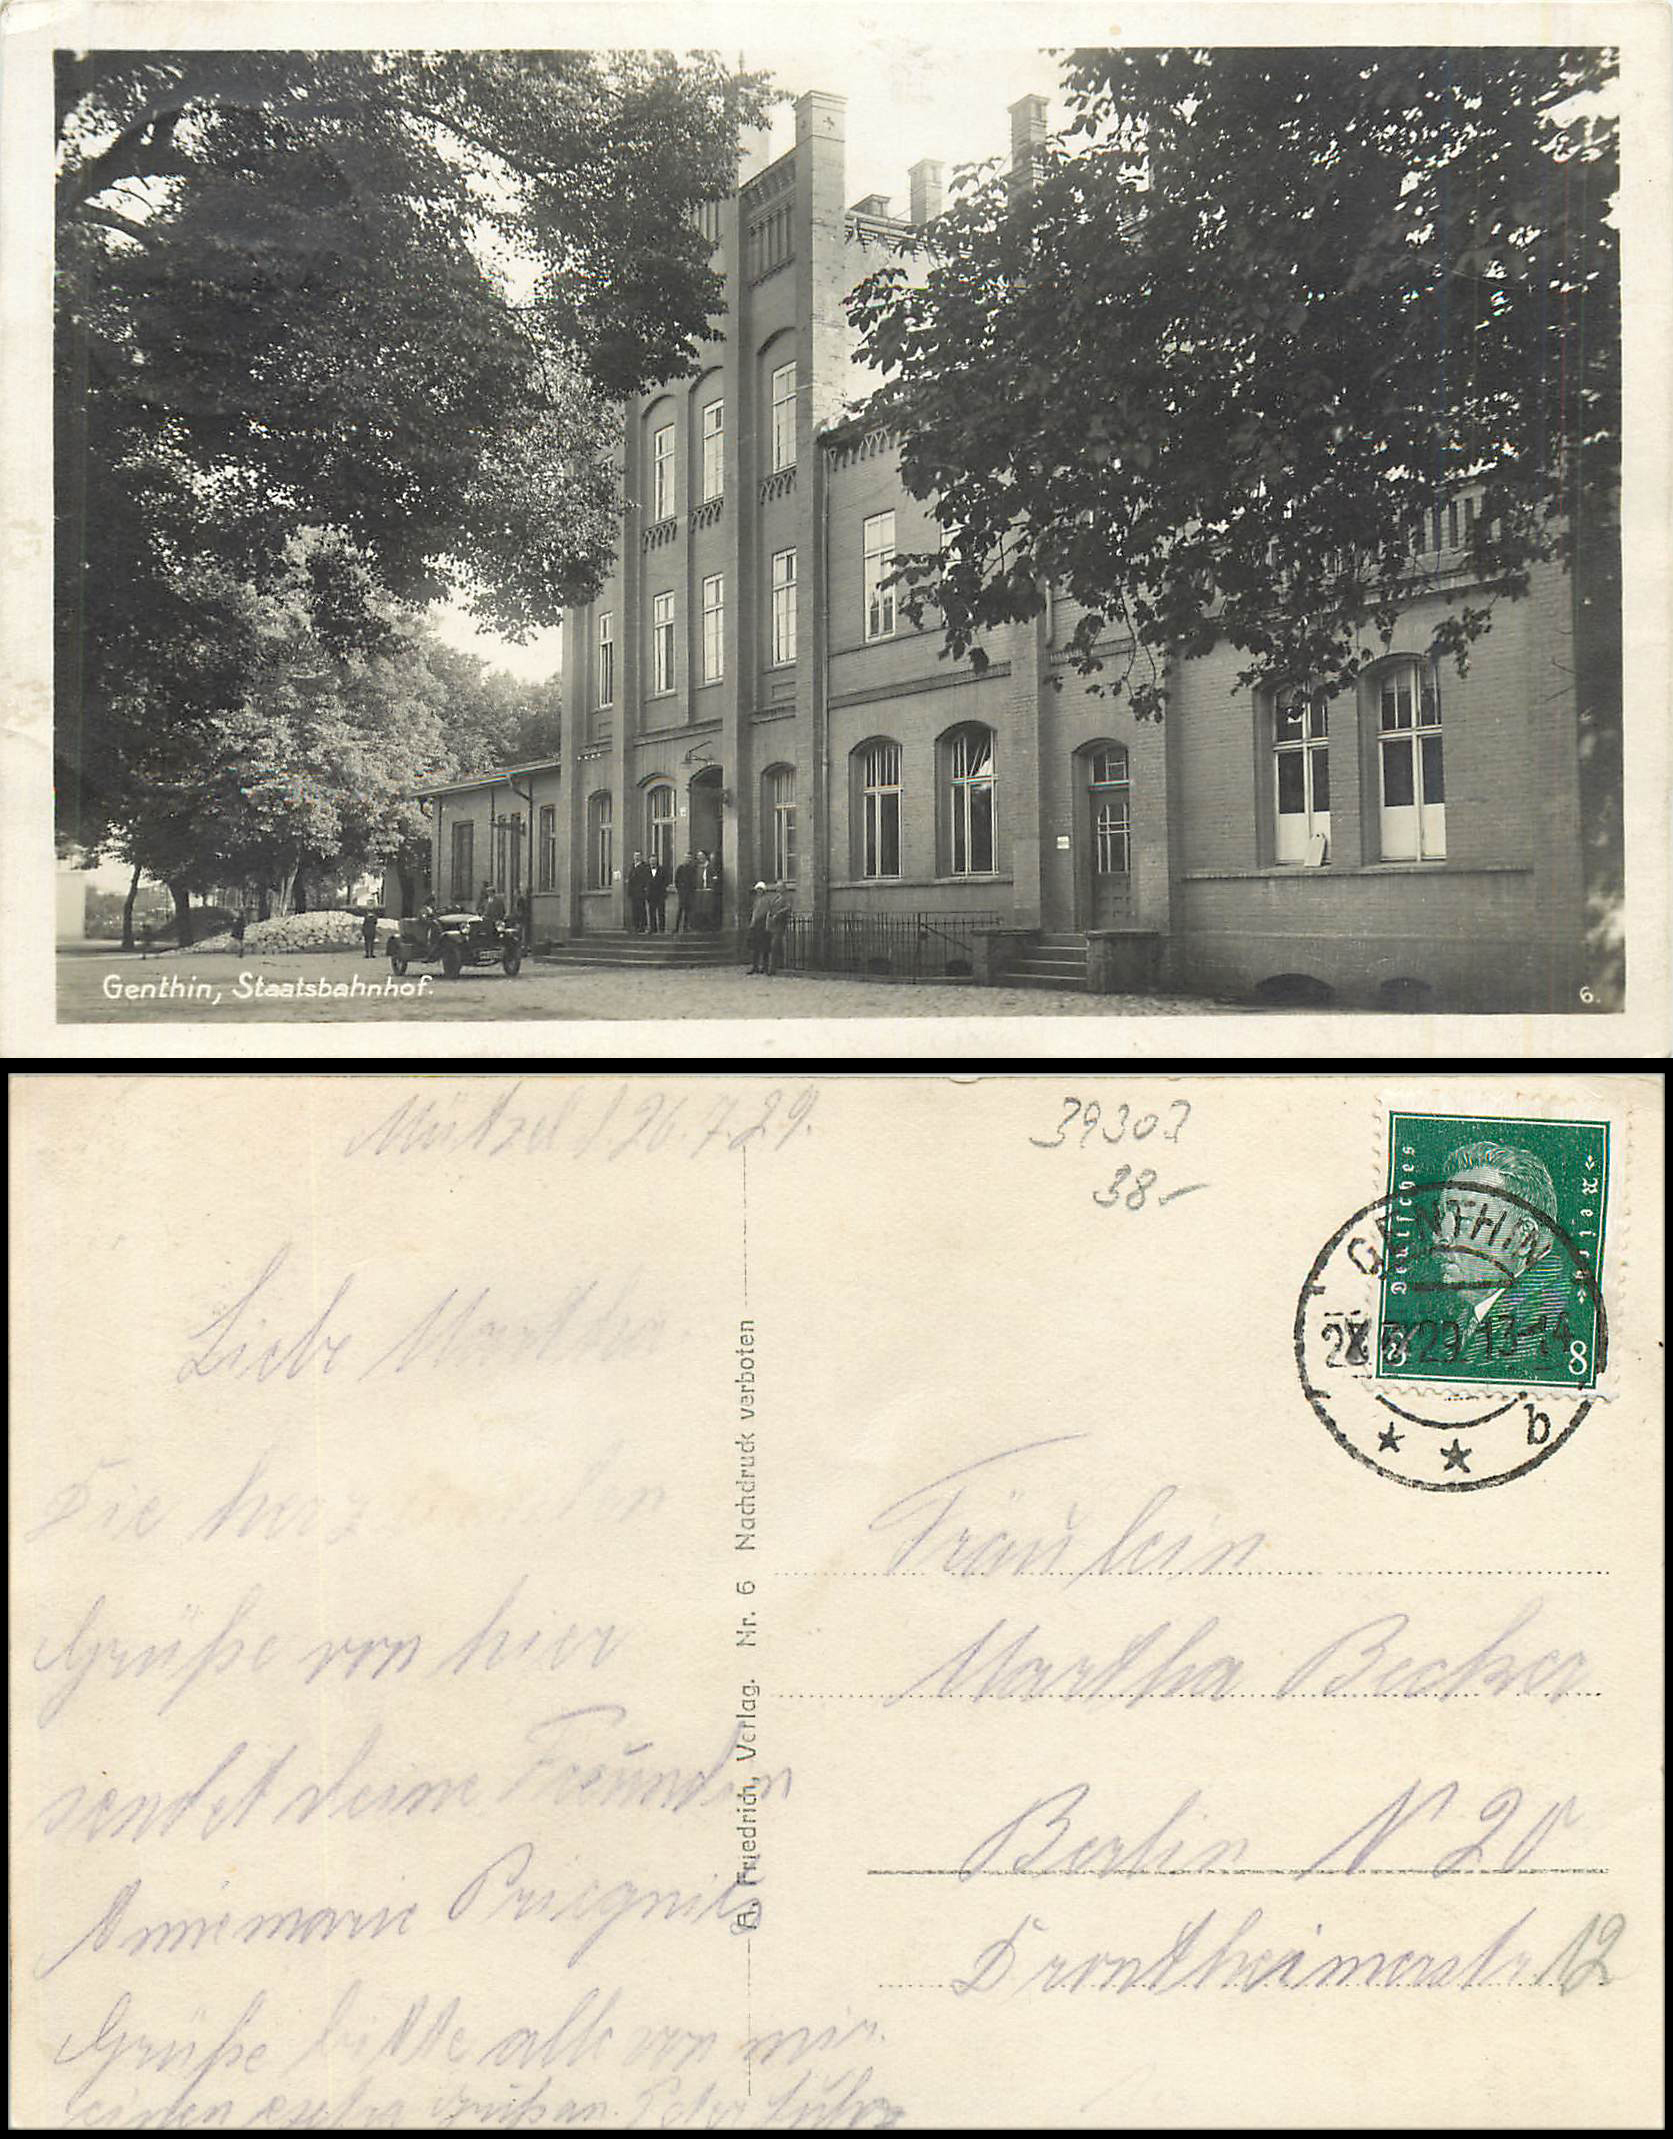 Genthin, Staatsbahnhof.
6.
Mützel d 26.7.29.
39303
38.–
Deutsches
»Reich«
8
8
GENTHIN
13-14
b
Liebe Martha
Die
Grüße von hier
sendet deine Freundin
Annemarie Priegnitz
Grüße bitte alle von mir.
einen extra Gruß an Peter
A. Friedrich, Verlag. Nr. 6 Nachdruck verboten
Fräulein
Martha Becker
Berlin N 20
Drontheimerstr 12